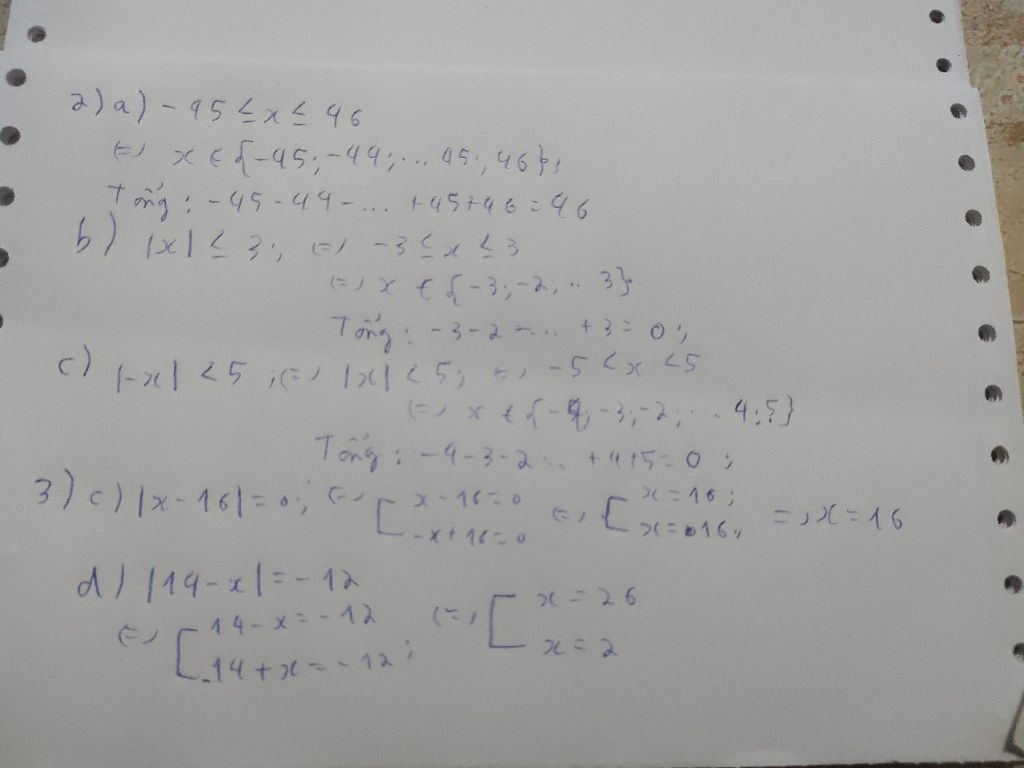 2) a) -45 ≤ x ≤ 46
(=) x ∈ {-45; -44; ... 45; 46};
Tổng: -45 - 44 - ... + 45 + 46 = 46
b) |x| ≤ 3; (=) -3 ≤ x ≤ 3
(=) x ∈ {-3; -2; .. 3}
Tổng: -3 - 2 - ... + 3 = 0;
c) |-x| < 5; (=) |x| < 5; (=) -5 < x < 5
(=) x ∈ {-4; -3; -2; ... 4; 5}
Tổng: -4 - 3 - 2 ... + 4 + 5 = 0;
3) c) |x - 16| = 0; (=) [ x - 16 = 0 (=) [ x = 16; =) x = 16
-x + 16 = 0 x = 16;
d) |14 - x| = -12
(=) [ 14 - x = -12 (=) [ x = 26
-14 + x = -12; x = 2